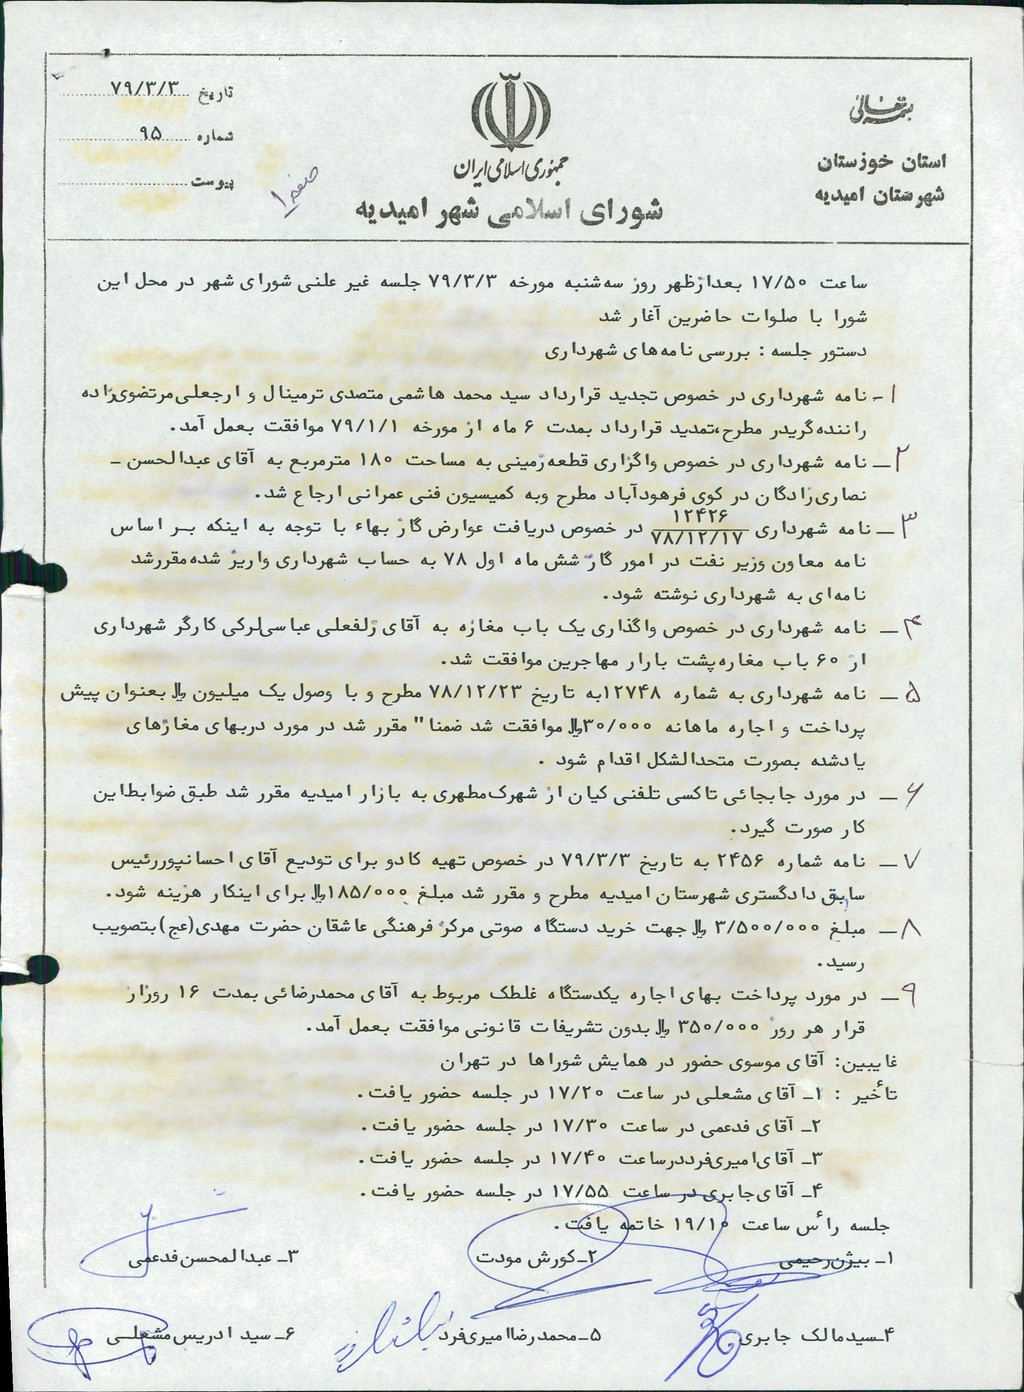 بسمه تعالی
استان خوزستان
شهرستان امیدیه
جمهوری اسلامی ایران
شورای اسلامی شهر امیدیه
تاریخ ۷۹/۳/۳
شماره ۹۵
پیوست
صفحه ۱
ساعت ۱۷/۵۰ بعدازظهر روز سه‌شنبه مورخه ۷۹/۳/۳ جلسه غیر علنی شورای شهر در محل این
شورا با صلوات حاضرین آغار شد
دستور جلسه : بررسی نامه‌های شهرداری
۱- نامه شهرداری در خصوص تجدید قرارداد سید محمد هاشمی متصدی ترمینال و ارجعلی مرتضوی‌زاده
راننده گریدر مطرح،تمدید قرارداد بمدت ۶ ماه از مورخه ۷۹/۱/۱ موافقت بعمل آمد.
۲- نامه شهرداری در خصوص واگزاری قطعه‌زمینی به مساحت ۱۸۰ مترمربع به آقای عبدالحسن -
نصاری‌زادگان در کوی فرهودآباد مطرح وبه کمیسیون فنی عمرانی ارجاع شد.
۳- نامه شهرداری ۱۲۴۲۶/۷۸/۱۲/۱۷ در خصوص دریافت عوارض گاز بهاء با توجه به اینکه بر اساس
نامه معاون وزیر نفت در امور گاز شش ماه اول ۷۸ به حساب شهرداری واریز شده مقررشد
نامه‌ای به شهرداری نوشته شود.
۴- نامه شهرداری در خصوص واگذاری یک باب مغازه به آقای زلفعلی عباسی‌لرکی کارگر شهرداری
از ۶۰ باب مغازه‌پشت بازار مهاجرین موافقت شد.
۵- نامه شهرداری به شماره ۱۲۷۴۸به تاریخ ۷۸/۱۲/۲۳ مطرح و با وصول یک میلیون ریال بعنوان پیش
پرداخت و اجاره ماهانه ۳۰/۰۰۰ریال موافقت شد ضمنا" مقرر شد در مورد دربهای مغازهای
یادشده بصورت متحدالشکل اقدام شود .
۶- در مورد جابجائی تاکسی تلفنی کیان از شهرک‌مطهری به بازار امیدیه مقرر شد طبق ضوابط‌این
کار صورت گیرد.
۷- نامه شماره ۲۴۵۶ به تاریخ ۷۹/۳/۳ در خصوص تهیه کادو برای تودیع آقای احسانپوررئیس
سابق دادگستری شهرستان امیدیه مطرح و مقرر شد مبلغ ۱۸۵/۰۰۰ریال برای اینکار هزینه شود.
۸- مبلغ ۳/۵۰۰/۰۰۰ ریال جهت خرید دستگاه صوتی مرکز فرهنگی عاشقان حضرت مهدی(عج)بتصویب
رسید.
۹- در مورد پرداخت بهای اجاره یکدستگاه غلطک مربوط به آقای محمدرضائی بمدت ۱۶ روزاز
قرار هر روز ۳۵۰/۰۰۰ ریال بدون تشریفات قانونی موافقت بعمل آمد.
غایبین: آقای موسوی حضور در همایش شوراها در تهران
تأخیر : ۱- آقای مشعلی در ساعت ۱۷/۲۰ در جلسه حضور یافت.
۲- آقای فدعمی در ساعت ۱۷/۳۰ در جلسه حضور یافت.
۳- آقای‌امیری‌فرددرساعت ۱۷/۴۰ در جلسه حضور یافت.
۴- آقای‌جابری در ساعت ۱۷/۵۵ در جلسه حضور یافت.
جلسه رأس ساعت ۱۹/۱۰ خاتمه یافت.
۱- بیژن‌رحیمی ۲-کورش مودت ۳- عبدالمحسن فدعمی
۴-سیدمالک جابری ۵-محمدرضاامیری‌فرد ۶- سید ادریس مشعلی